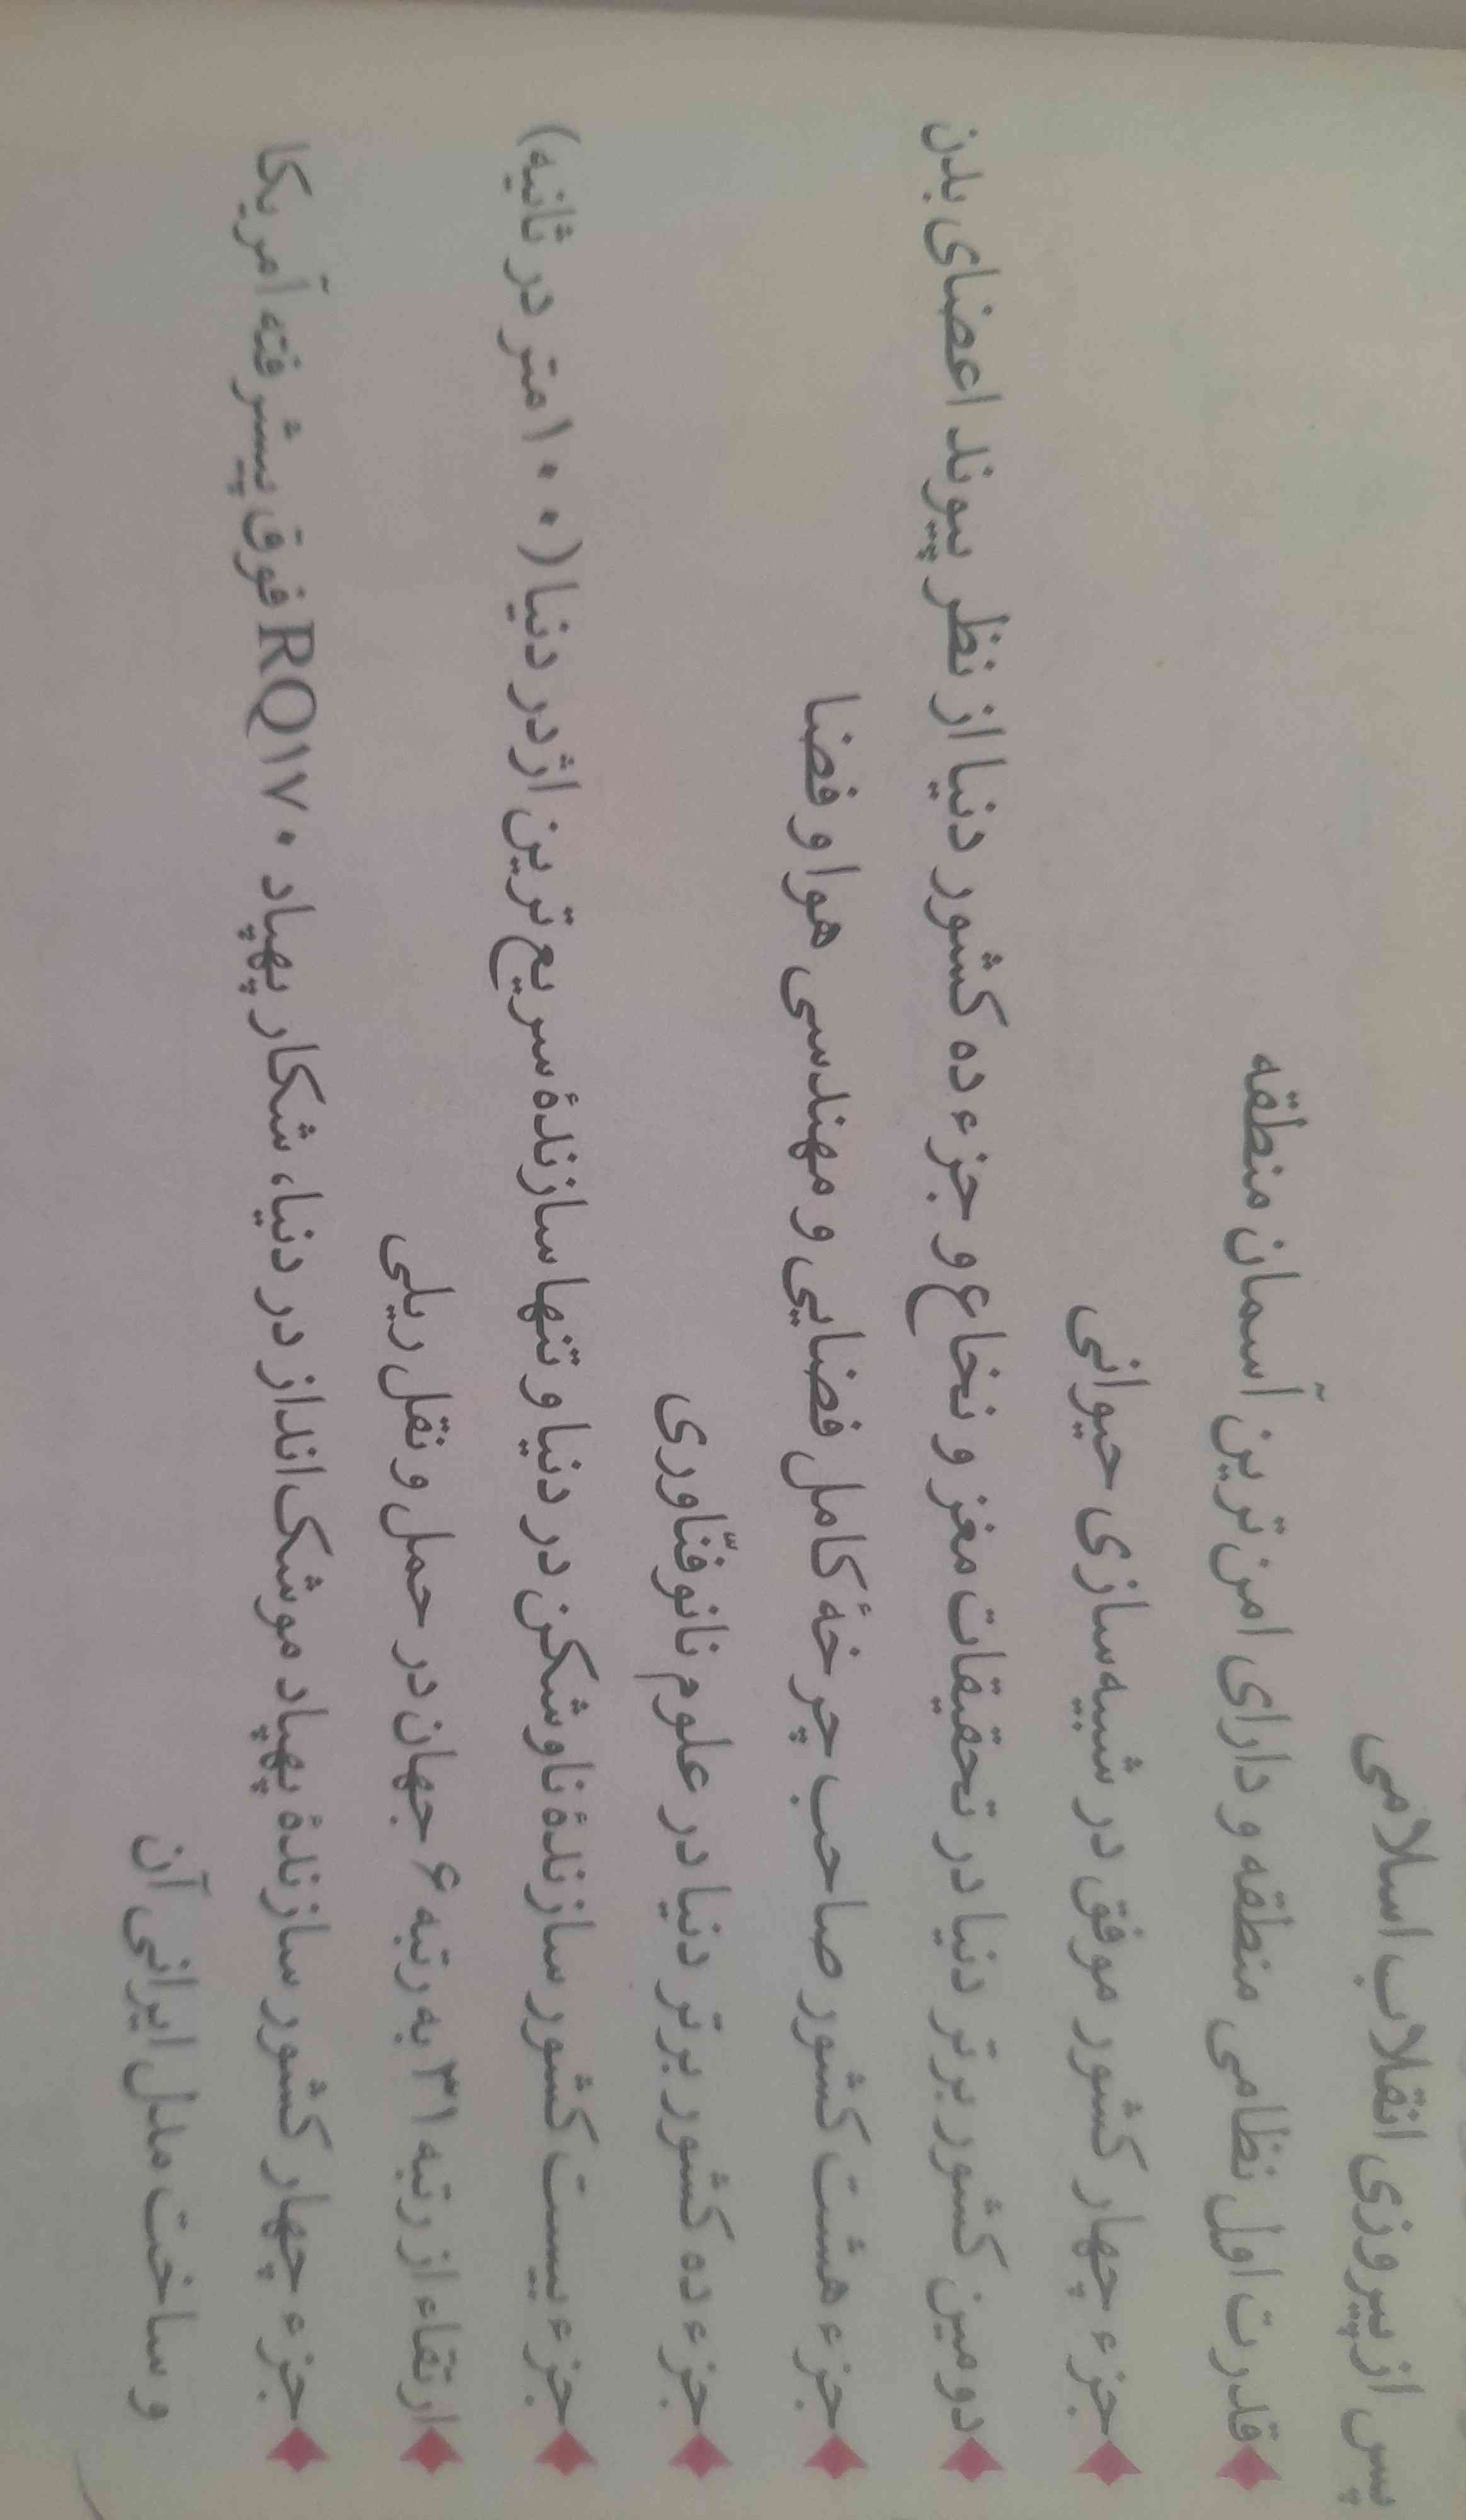 پس از پیروزی انقلاب اسلامی
قدرت اول نظامی منطقه و دارای امن‌ترین آسمان منطقه
جزء چهار کشور موفق در شبیه‌سازی حیوانی
دومین کشور برتر دنیا در تحقیقات مغز و نخاع و جزء ده کشور دنیا از نظر پیوند اعضای بدن
جزء هشت کشور صاحب چرخهٔ کامل فضایی و مهندسی هوا و فضا
جزء ده کشور برتر دنیا در علوم نانوفنّاوری
جزء بیست کشور سازندهٔ ناوشکن در دنیا و تنها سازندهٔ سریع‌ترین اژدر دنیا (۱۰۰ متر در ثانیه)
ارتقاء از رتبه ۳۱ به رتبه ۶ جهان در حمل و نقل ریلی
جزء چهار کشور سازندهٔ پهپاد موشک‌انداز در دنیا، شکار پهپاد RQ۱۷۰ فوق پیشرفته آمریکا
و ساخت مدل ایرانی آن